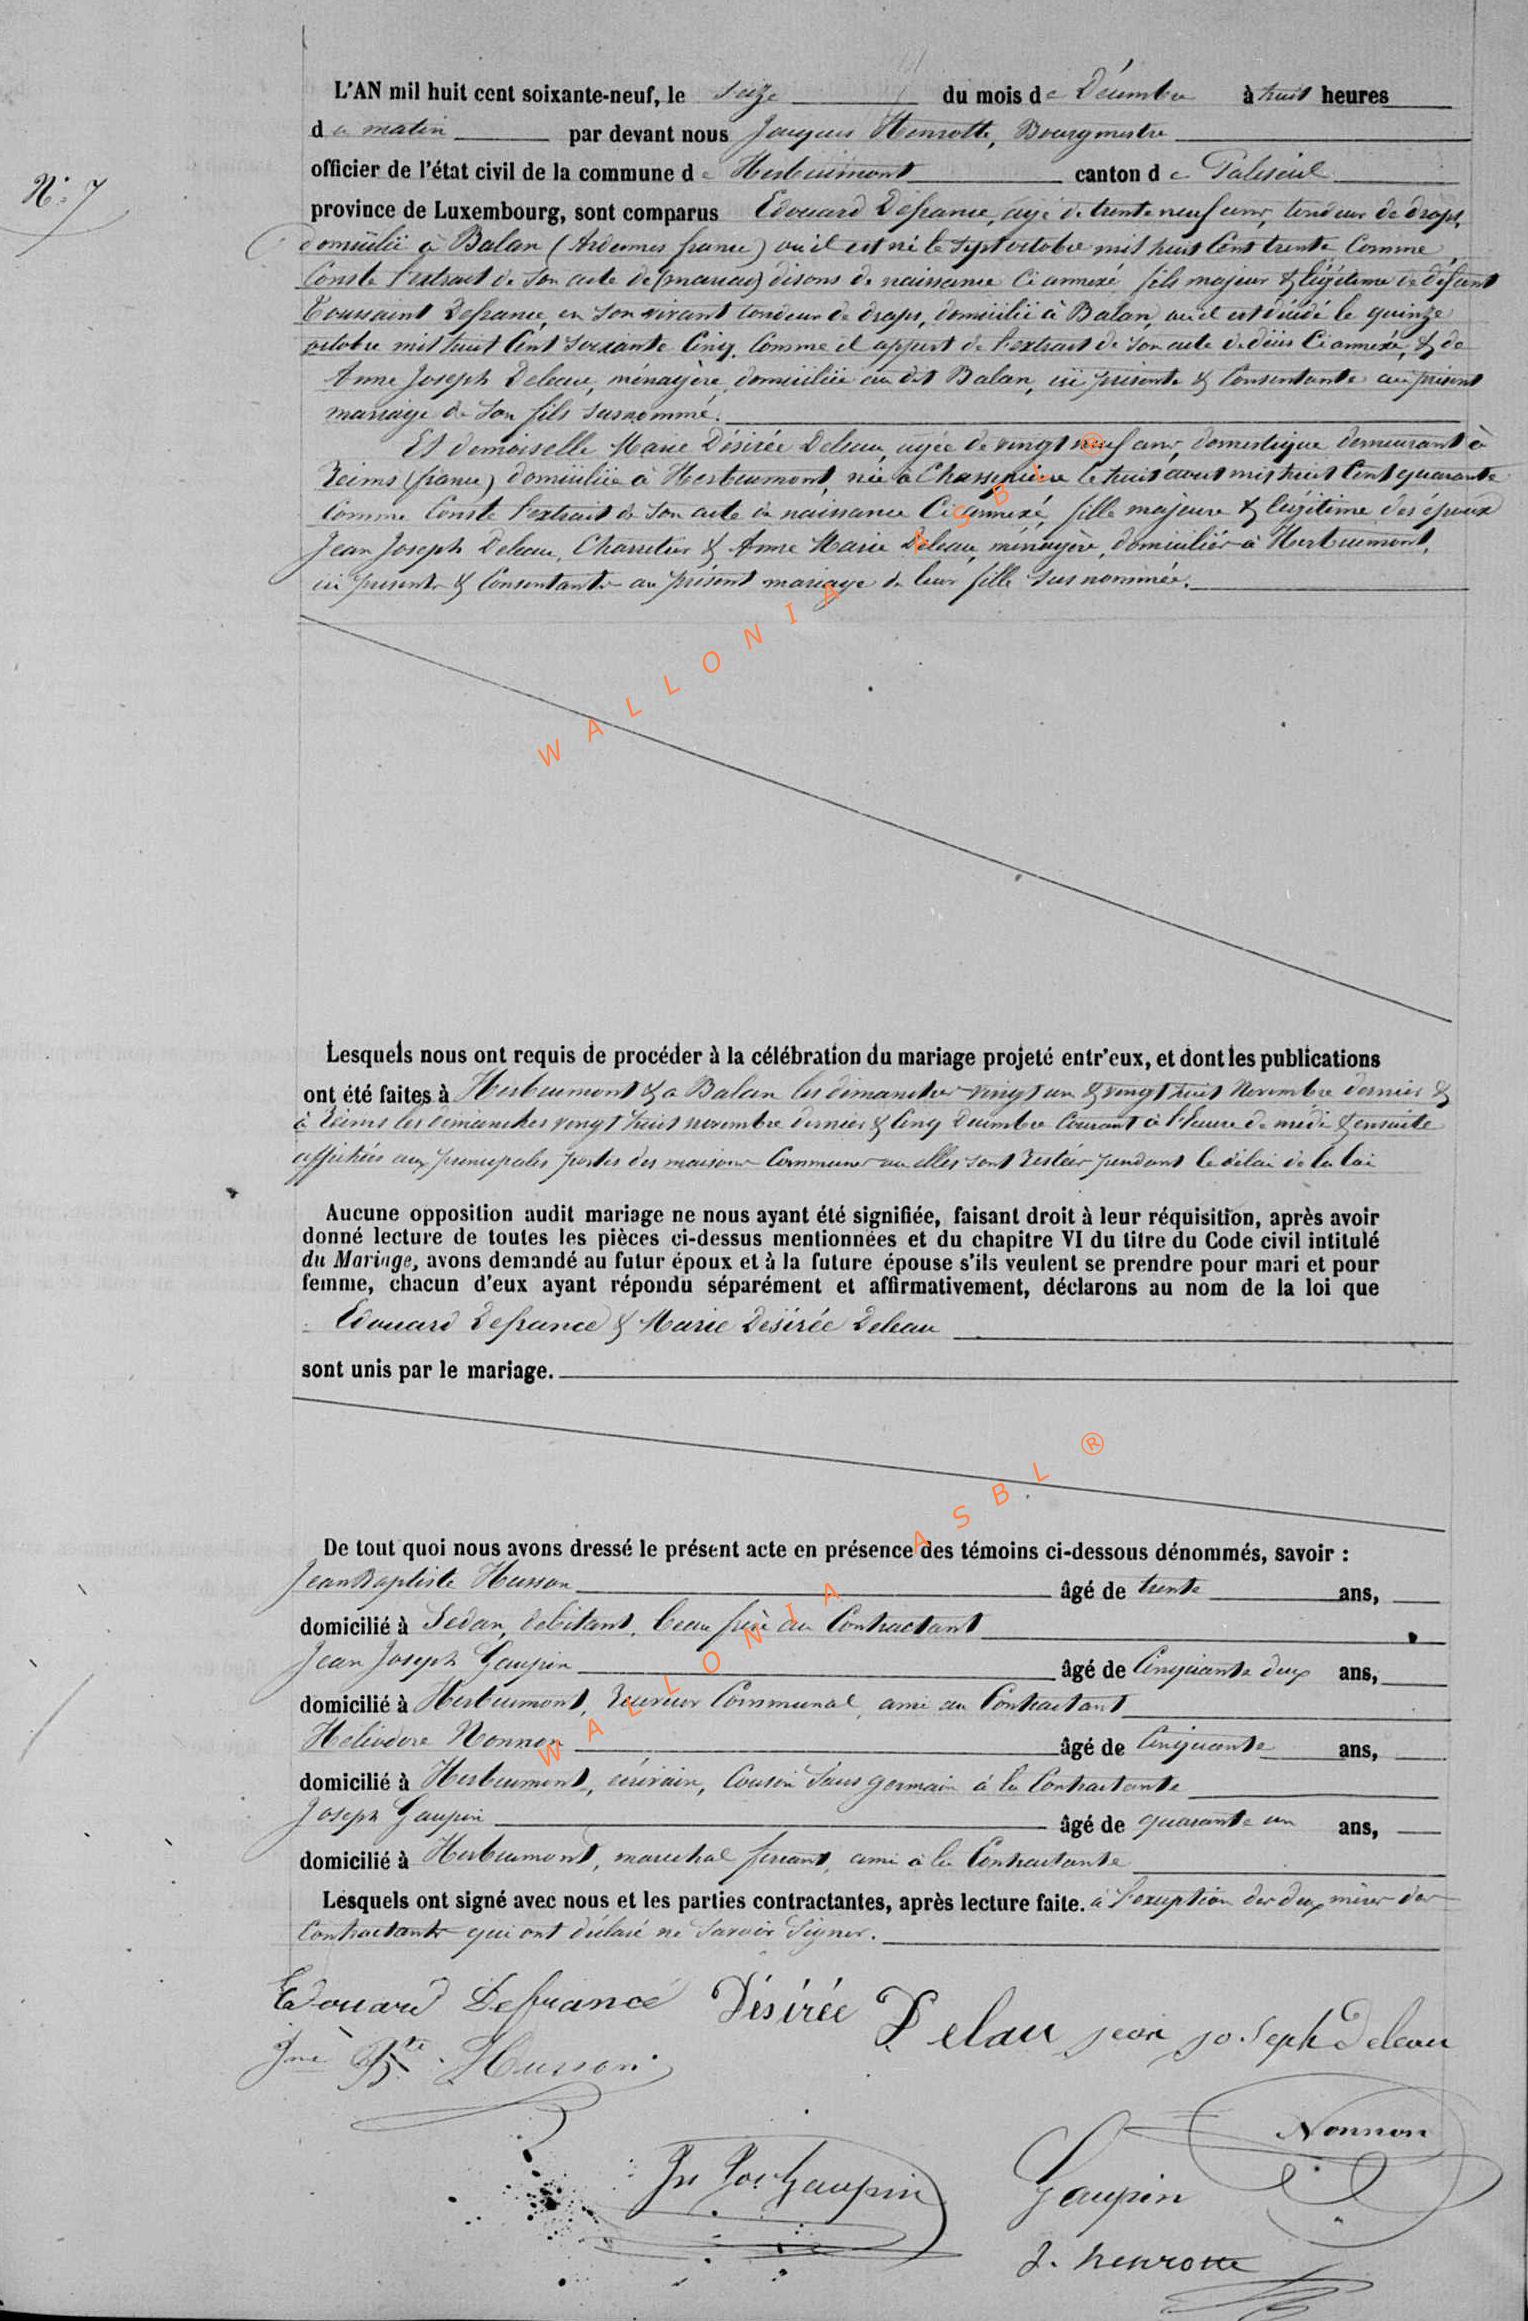 N° 7
L'AN mil huit cent soixante-neuf, le seize du mois de Décembre à huit heures
du matin par devant nous Jacques Henrotte, Bourgmestre
officier de l'état civil de la commune de Herbeumont canton de Paliseul
province de Luxembourg, sont comparus Edouard Defrance, agé de trente neuf ans, tondeur de draps,
domicilié à Balan (Ardennes france) où il est né le sept octobre mil huit Cent trente Comme
Conste l'extrait de son acte de (mariage) disons de naissance Ci annexé fils majeur & légitime de défunt
Toussaint Defrance, en son vivant tondeur de draps, domicilié à Balan, où il est décédé le quinze
octobre mil huit Cent soixante Cinq, Comme il appert de l'extrait de son acte de décès Ci annexé, & de
Anne Joseph Deleau, ménagère, domiciliée au dit Balan, ici présente & Consentante au présent
mariage de son fils susnommé.
Et demoiselle Marie Désirée Deleau, agée de vingt neuf ans, domestique demeurant à
Reims (france) domiciliée à Herbeumont, née à Chassepierre le huit aout mil huit Cent quarante
Comme Conste l'extrait de son acte de naissance Ci annexé, fille majeure & légitime des époux
Jean Joseph Deleau, Charretier & Anne Marie Deleau, ménagère, domiciliés à Herbeumont,
ici présents & Consentants au présent mariage de leur fille susnommée.
WALLONIA ASBL ®
Lesquels nous ont requis de procéder à la célébration du mariage projeté entr'eux, et dont les publications
ont été faites à Herbeumont & à Balan les dimanches vingt un & vingt huit Novembre dernier &
à Reims les dimanches vingt huit novembre dernier & Cinq Décembre Courant à l'heure de midi & ensuite
affichées aux principales portes des maisons Communes où elles sont restées pendant le délai de la loi
Aucune opposition audit mariage ne nous ayant été signifiée, faisant droit à leur réquisition, après avoir
donné lecture de toutes les pièces ci-dessus mentionnées et du chapitre VI du titre du Code civil intitulé
du Mariage, avons demandé au futur époux et à la future épouse s'ils veulent se prendre pour mari et pour
femme, chacun d'eux ayant répondu séparément et affirmativement, déclarons au nom de la loi que
Edouard Defrance & Marie Désirée Deleau
sont unis par le mariage.
WALLONIA ASBL ®
De tout quoi nous avons dressé le présent acte en présence des témoins ci-dessous dénommés, savoir :
Jean Baptiste Husson âgé de trente ans,
domicilié à Sedan, debitant, beau frère au Contractant
Jean Joseph Gaupin âgé de Cinquante deux ans,
domicilié à Herbeumont, Receveur Communal, ami au Contractant
Heliodore Nonnon âgé de Cinquante ans,
domicilié à Herbeumont, écrivain, Cousin sous germain à la Contractante
Joseph Gaupin âgé de quarante un ans,
domicilié à Herbeumont, marechal ferrant, ami à la Contractante
Lesquels ont signé avec nous et les parties contractantes, après lecture faite. à l'exception des deux mères des
Contractants qui ont déclaré ne savoir signer.
Edouard Defrance Désirée Delau jean joseph Deleau
Jn Bte Husson
Nonnon
Jn Jos Gaupin Gaupin
J. henrotte